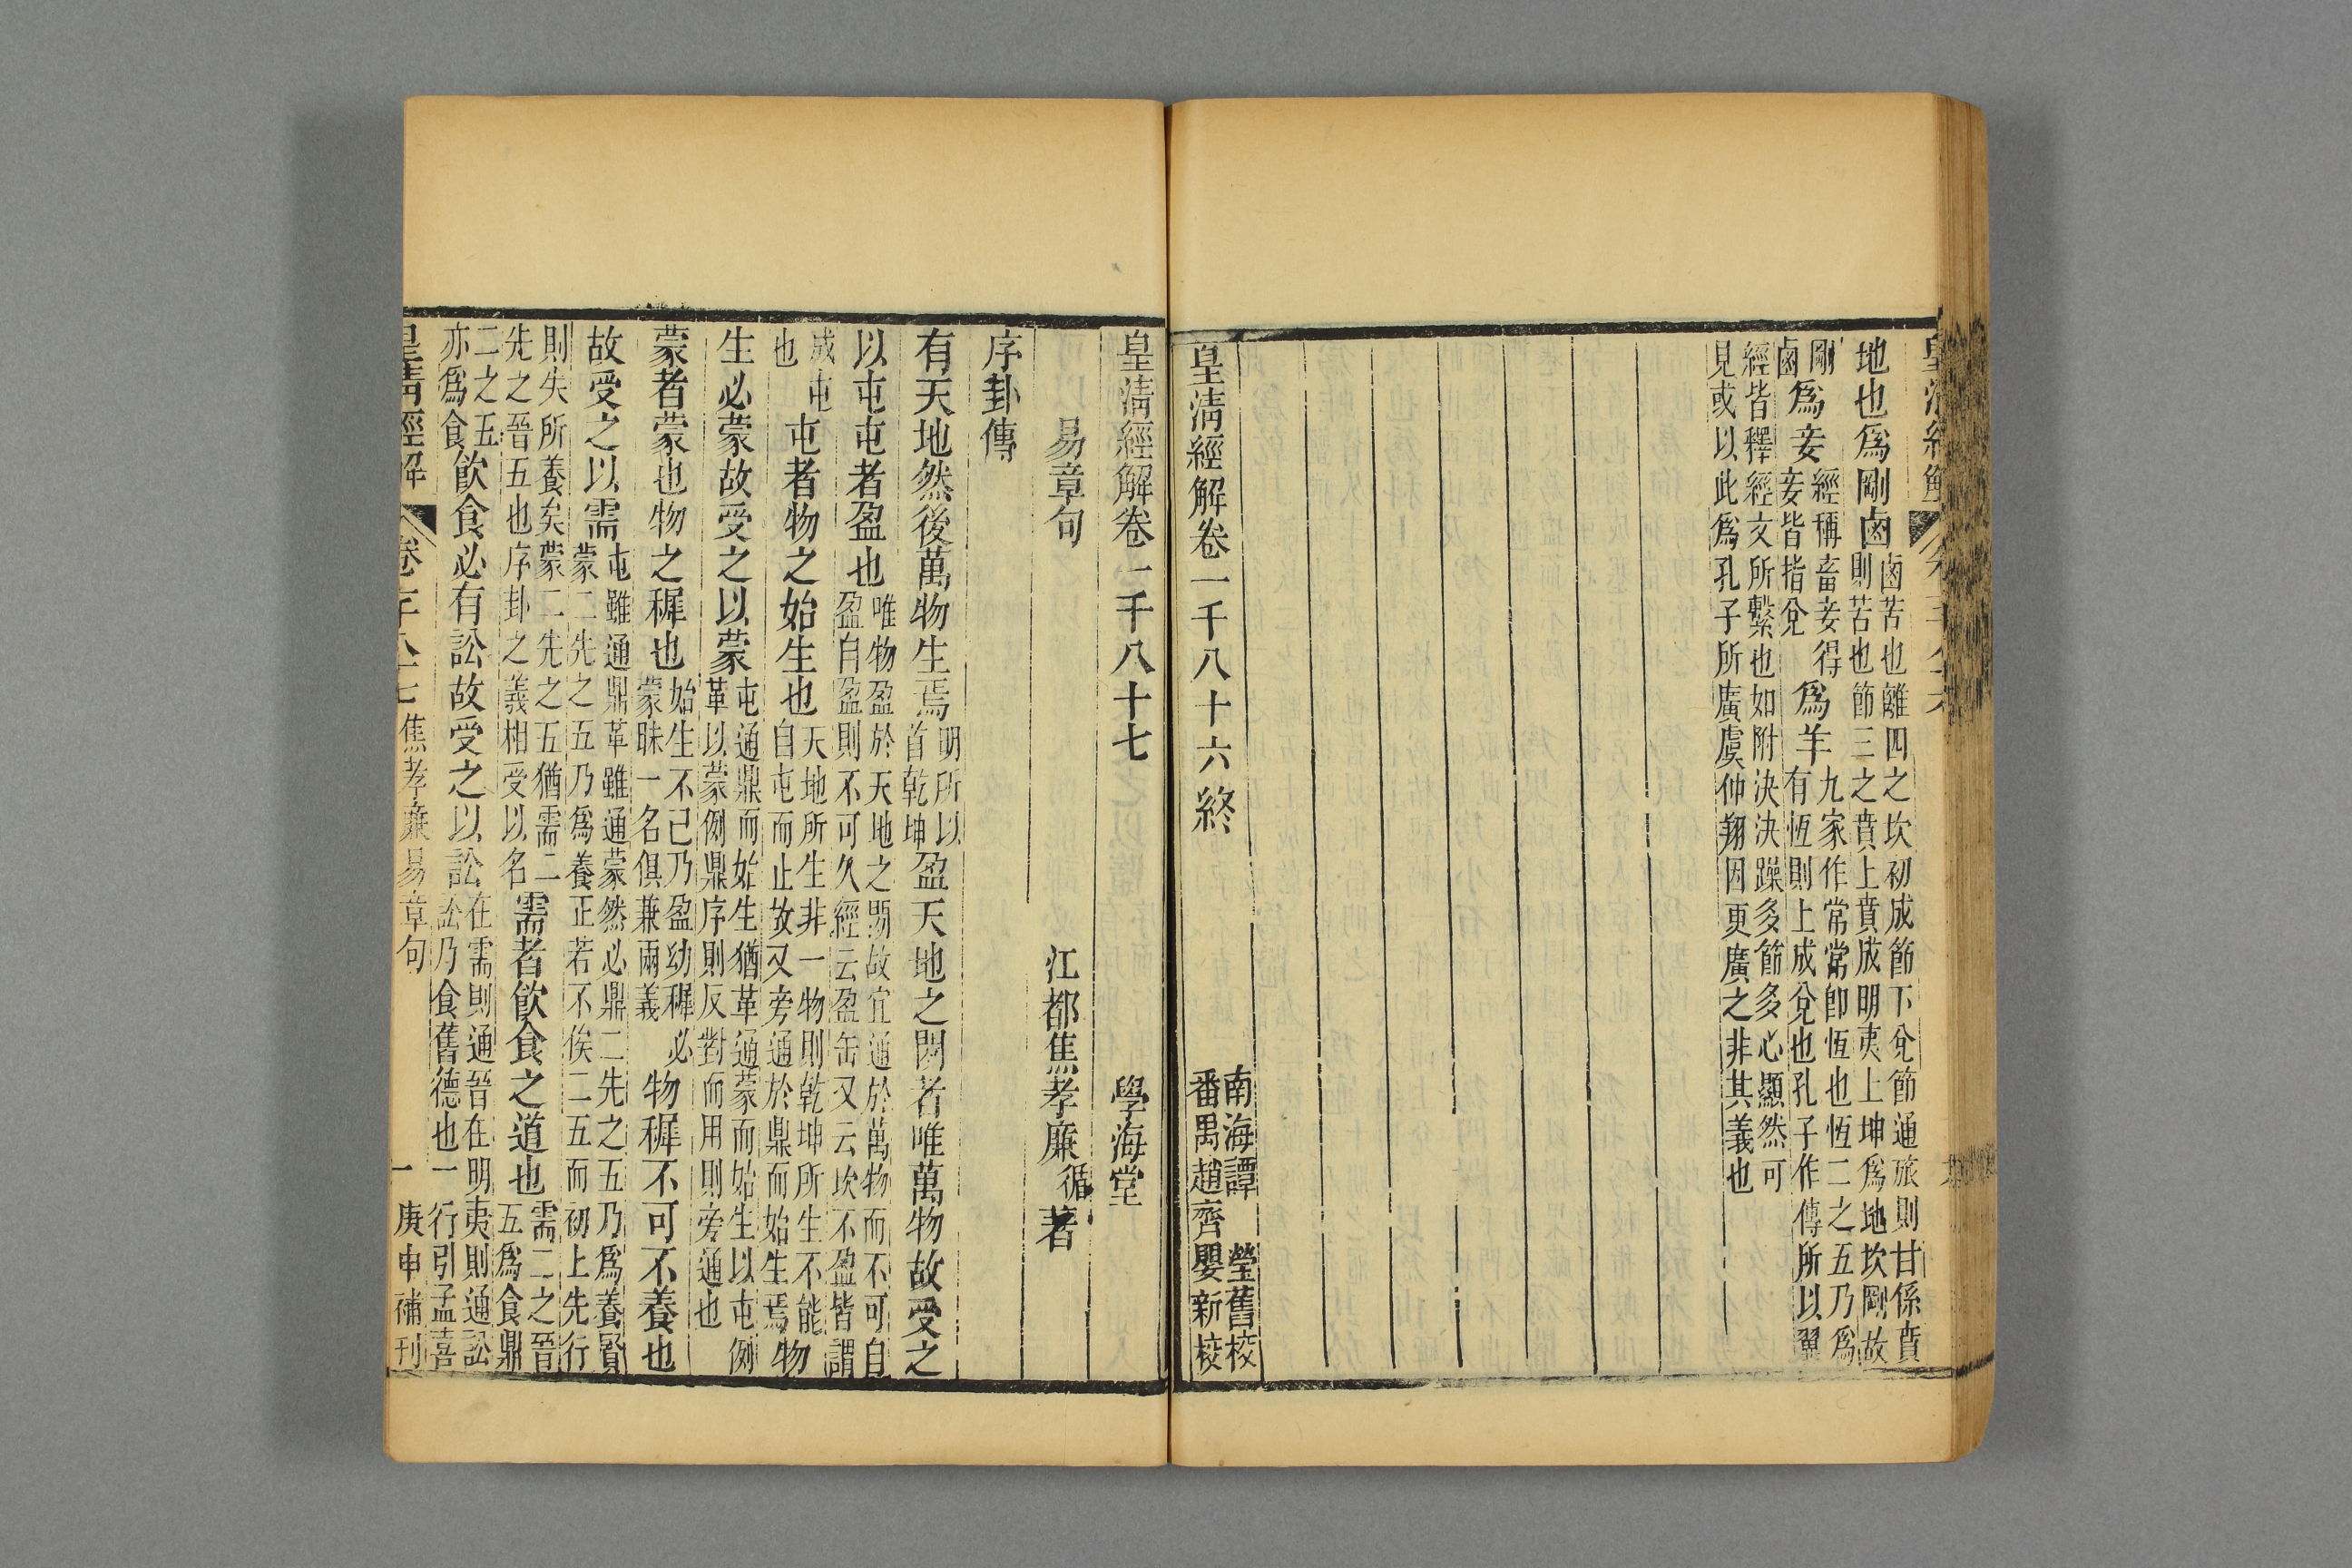 皇清經解
地也爲剛鹵鹵苦也離四之坎初成節下兌節通旅則甘係賁則苦也節三之賁上賁成明夷上坤爲地坎剛故
剛鹵爲妾經稱畜妾得妾皆指兌爲羊九家作常常卽恆也恆二之五乃爲有恆則上成兌也孔子作傳所以翼
經皆釋經文所繫也如附決決躁多節多心顯然可見或以此爲孔子所廣虞仲翔因更廣之非其義也
皇清經解卷一千八十六終
南海譚 瑩舊校
番禺趙齊嬰新校
皇清經解卷一千八十七 學海堂
易章句 江都焦孝廉循著
序卦傳
有天地然後萬物生焉明所以首乾坤盈天地之閒者唯萬物故受之
以屯屯者盈也唯物盈於天地之閒故宜通於萬物而不可自盈自盈則不可久經云盈缶又云坎不盈皆謂
成屯也屯者物之始生也天地所生非一物則乾坤所生不能自屯而止故又旁通於鼎而始生焉物
生必蒙故受之以蒙屯通鼎而始生猶革通蒙而始生以屯例革以蒙例鼎序則反對而用則旁通也
蒙者蒙也物之穉也始生不已乃盈幼穉必蒙昧一名俱兼兩義物穉不可不養也
故受之以需屯雖通鼎革雖通蒙然必鼎二先之五乃爲養賢蒙二先之五乃爲養正若不俟二五而初上先行
則失所養矣蒙二先之五猶需二先之晉五也序卦之義相受以名需者飲食之道也需二之晉五爲食鼎
二之五亦爲食飲食必有訟故受之以訟在需則通晉在明夷則通訟訟乃食舊德也一行引孟喜
皇清經解 卷一千八十七 焦孝廉易章句 一 庚申補刊